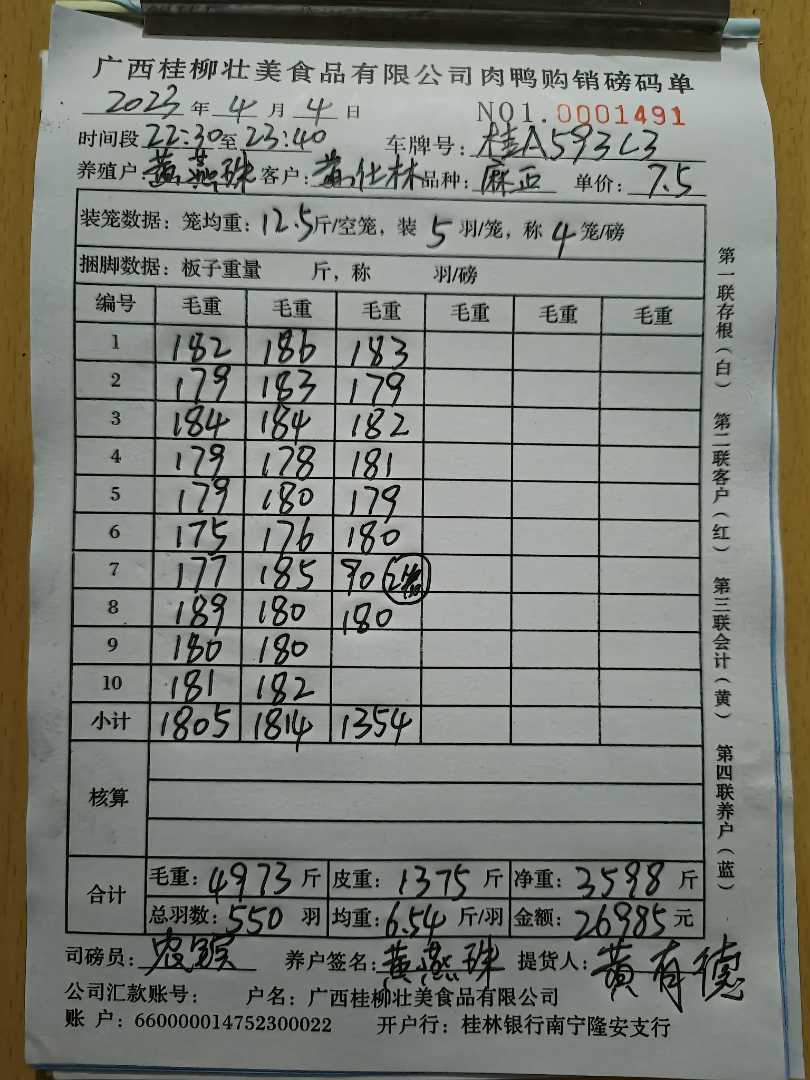 广西桂柳壮美食品有限公司肉鸭购销磅码单
2023 年 4 月 4 日 NO1.0001491
时间段 22:30 至 23:40 车牌号: 桂A593L3
养殖户: 黄燕珠 客户: 黄仕林 品种: 麻正 单价: 7.5
装笼数据: 笼均重: 12.5 斤/空笼, 装 5 羽/笼, 称 4 笼/磅
捆脚数据: 板子重量 斤, 称 羽/磅
编号 毛重 毛重 毛重 毛重 毛重 毛重
1 182 186 183
2 179 183 179
3 184 184 182
4 179 178 181
5 179 180 179
6 175 176 180
7 177 185 90
8 189 180 180
9 180 180
10 181 182
小计 1805 1814 1354
核算
合计 毛重: 4973 斤 皮重: 1375 斤 净重: 3598 斤
总羽数: 550 羽 均重: 6.54 斤/羽 金额: 26985 元
司磅员: 养户签名: 黄燕珠 提货人: 黄有德
公司汇款账号: 户名: 广西桂柳壮美食品有限公司
账 户: 660000014752300022 开户行: 桂林银行南宁隆安支行
第一联存根(白) 第二联客户(红) 第三联会计(黄) 第四联养户(蓝)